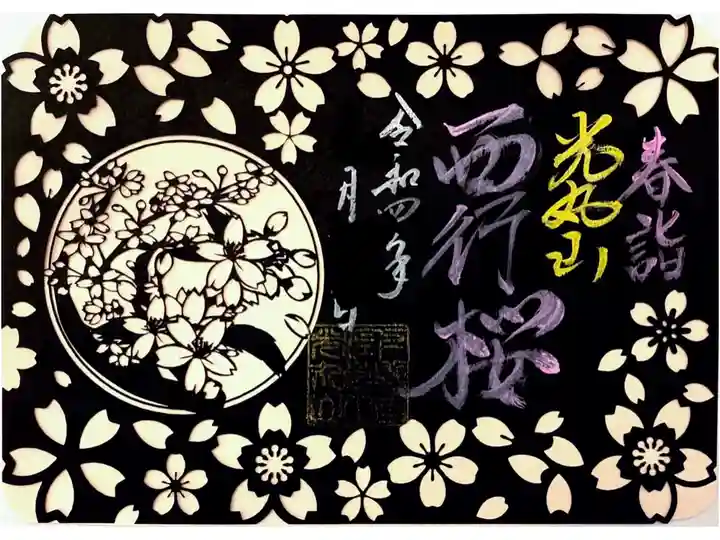 春詣
光丸山
西行桜
令和四年
月　日